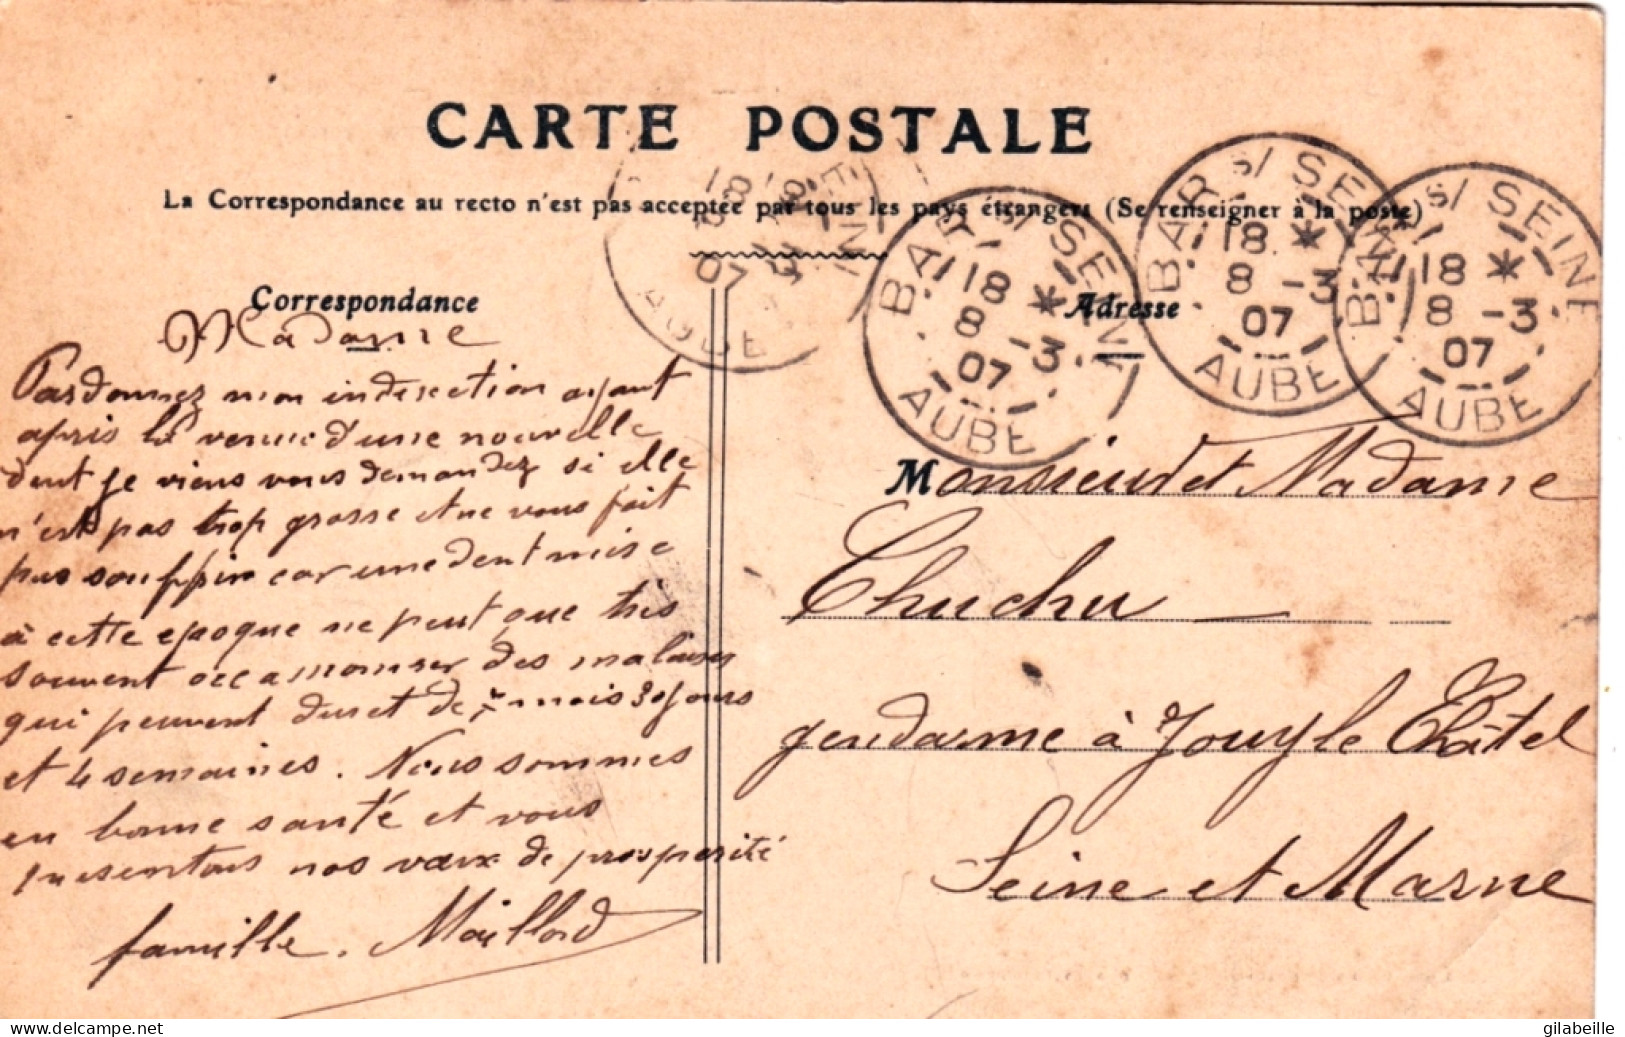 CARTE POSTALE
La Correspondance au recto n'est pas acceptée par tous les pays étrangers (Se renseigner à la poste)
Correspondance
Adresse
BAR S/ SEINE
18 *
8 - 3
07
AUBE
BAR S/ SEINE
18 *
8 - 3
07
AUBE
BAR S/ SEINE
18 *
8 - 3
07
AUBE
18
8
07
AUBE
Madame
Pardonnez mon indiscrétion ayant
apris la venue d'une nouvelle
dent je viens vous demandez si elle
n'est pas trop grosse et ne vous fait
pas souffrir car une dent mise
à cette epoque ne peut que très
souvent occasionner des malaises
qui peuvent duret de mois 30 jours
et 4 semaines. Nous sommes
en bonne santé et vous
presentons nos vœux de prosperité
famille. Maillard
Monsieur et Madame
Chuchu
gendarme à Jouy le Châtel
Seine et Marne
www.delcampe.net
gilabeille